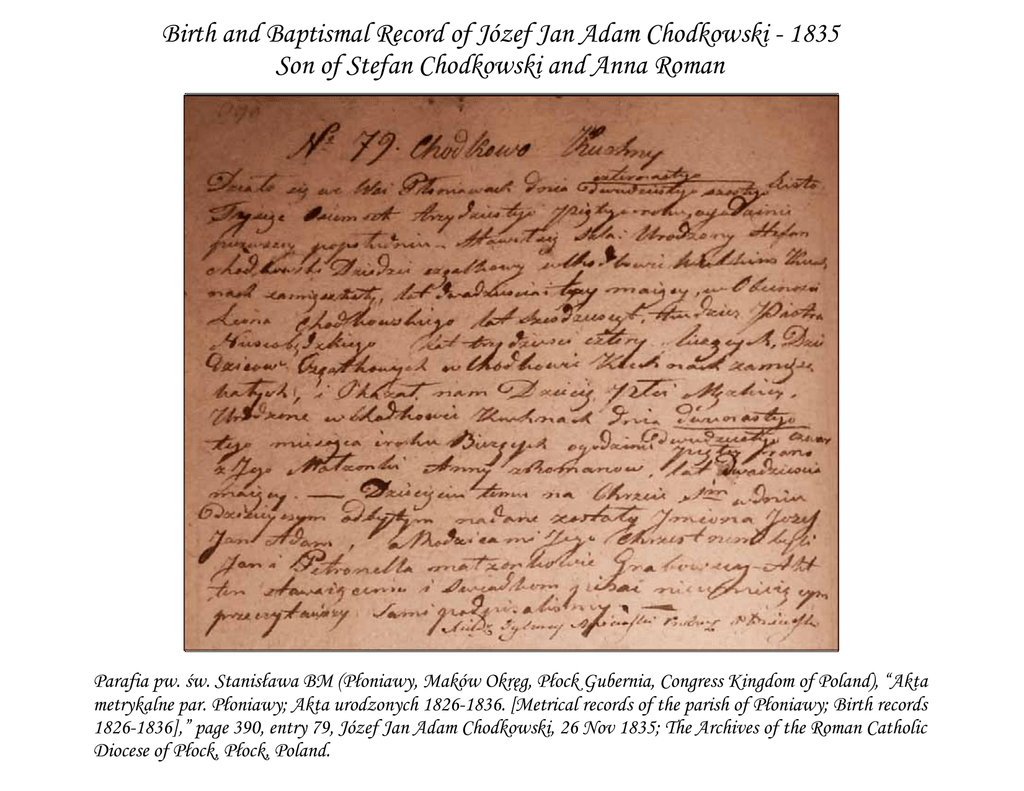 Birth and Baptismal Record of Józef Jan Adam Chodkowski - 1835
Son of Stefan Chodkowski and Anna Roman
№ 79. Chodkowo Kuchny
Działo się we Wsi Płoniawach dnia czternastego dwudziestego szostego Listo
Tysiąc Osiemset trzydziestego Piątego roku, o godzinie
pierwszey popołudniu. Stawił się Urodzony Stefan
Chodkowski Dziedzic cząstkowy w Chodkowie Kuch
nach zamięszkały, lat dwadziescia trzy maiący, w Obecności
Leona Chodkowskiego lat sześdziesiąt, tudzież Piotra
lat trzydziesci cztery liczących, Dzie
dziców Cząstkowych w Chodkowie Kuchnach zamięsz
kałych, i Okazał nam Dziecię Płci Męzkiey,
Urodzone w Chodkowie Kuchnach dnia dwunastego
tego miesiąca i roku Bieżących o godzinie piątey rano
z Jego Małżonki Anny z Romanow, lat dwadziescia
maiącey. — Dziecięciu temu na Chrzcie Stm w dniu
dzisieyszym odbytym nadane zostały Jmiona Jozef
Jan Adam, a Rodzicami Jego Chrzestnemi byli
Jan i Petronella małżonkowie Grabowscy. Akt
ten stawaiącemu i Swiadkom pisać nieumieiącym
przeczytawszy Sami podpisalismy. —
Parafia pw. św. Stanisława BM (Płoniawy, Maków Okręg, Płock Gubernia, Congress Kingdom of Poland), “Akta
metrykalne par. Płoniawy; Akta urodzonych 1826-1836. [Metrical records of the parish of Płoniawy; Birth records
1826-1836],” page 390, entry 79, Józef Jan Adam Chodkowski, 26 Nov 1835; The Archives of the Roman Catholic
Diocese of Płock, Płock, Poland.